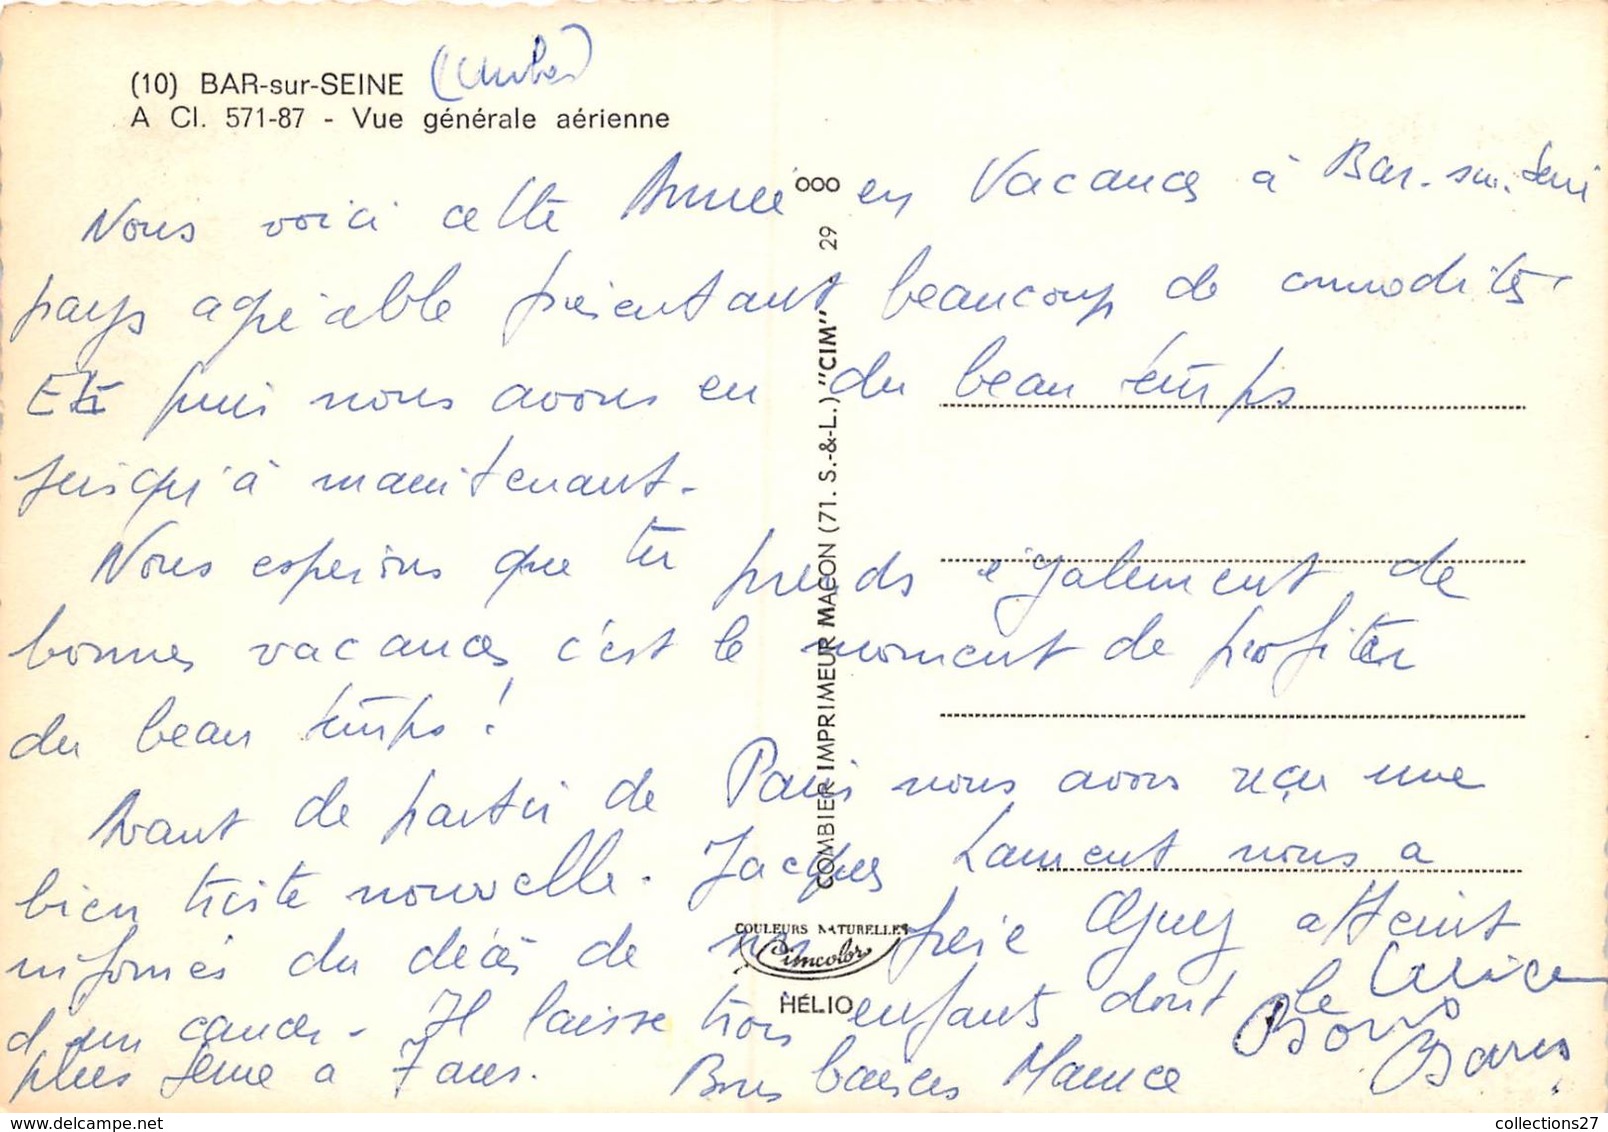 (10) BAR-sur-SEINE (Aube)
A Cl. 571-87 - Vue générale aérienne
Nous voici cette Année en Vacances à Bar-sur-Seine
pays agréable présentant beaucoup de commodités.
Et puis nous avons eu du beau temps
jusqu'à maintenant.
Nous espérons que tu prends également de
bonnes vacances c'est le moment de profiter
du beau temps!
Avant de partir de Paris nous avons reçu une
bien triste nouvelle. Jacques Laurent nous a
informés du décès de son frère Guy atteint
d'un cancer. Il laisse trois enfants dont le
plus jeune a 7 ans. Bons baisers Maurice
Bons
Baisers
OOO
COMBIER IMPRIMEUR MACON (71. S.-&-L.) "CIM" 29
COULEURS NATURELLES
Cimcolor
HÉLIO
collections27